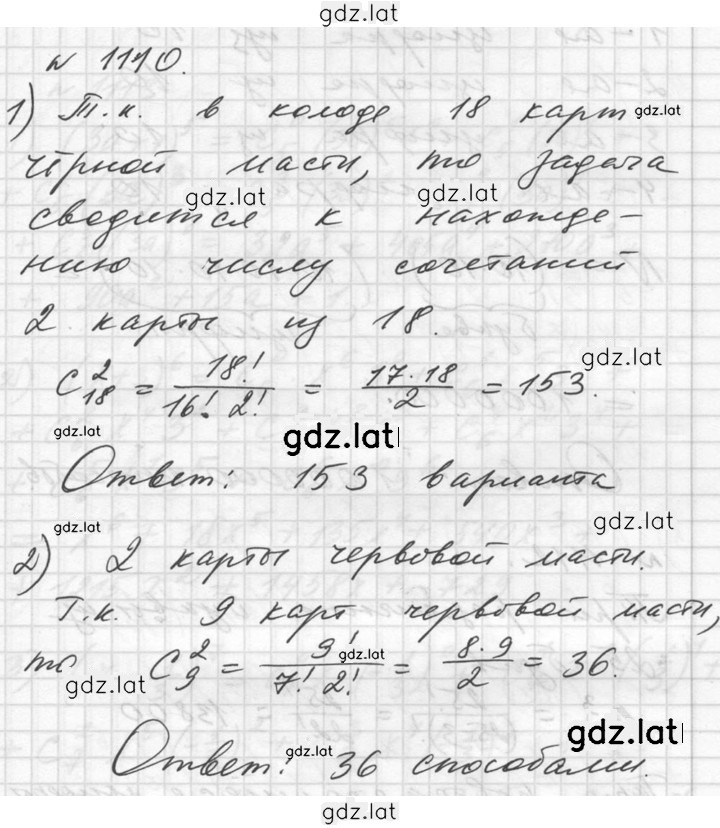 gdz.lat
№ 1110.
1) Т.к. в колоде 18 карт gdz.lat
чёрной масти, то задача
gdz.lat gdz.lat
сводится к нахожде-
нию числу сочетаний
2 карты из 18.
gdz.lat
C²₁₈ = 18!/(16! 2!) = (17·18)/2 = 153.
gdz.lat
gdz.lat
Ответ: 153 варианта
gdz.lat gdz.lat
2) 2 карты червовой масти.
Т.к. 9 карт червовой масти,
то C²₉ = 9!/(7! 2!) = (8·9)/2 = 36.
gdz.lat
gdz.lat
gdz.lat gdz.lat
Ответ: 36 способами.
gdz.lat